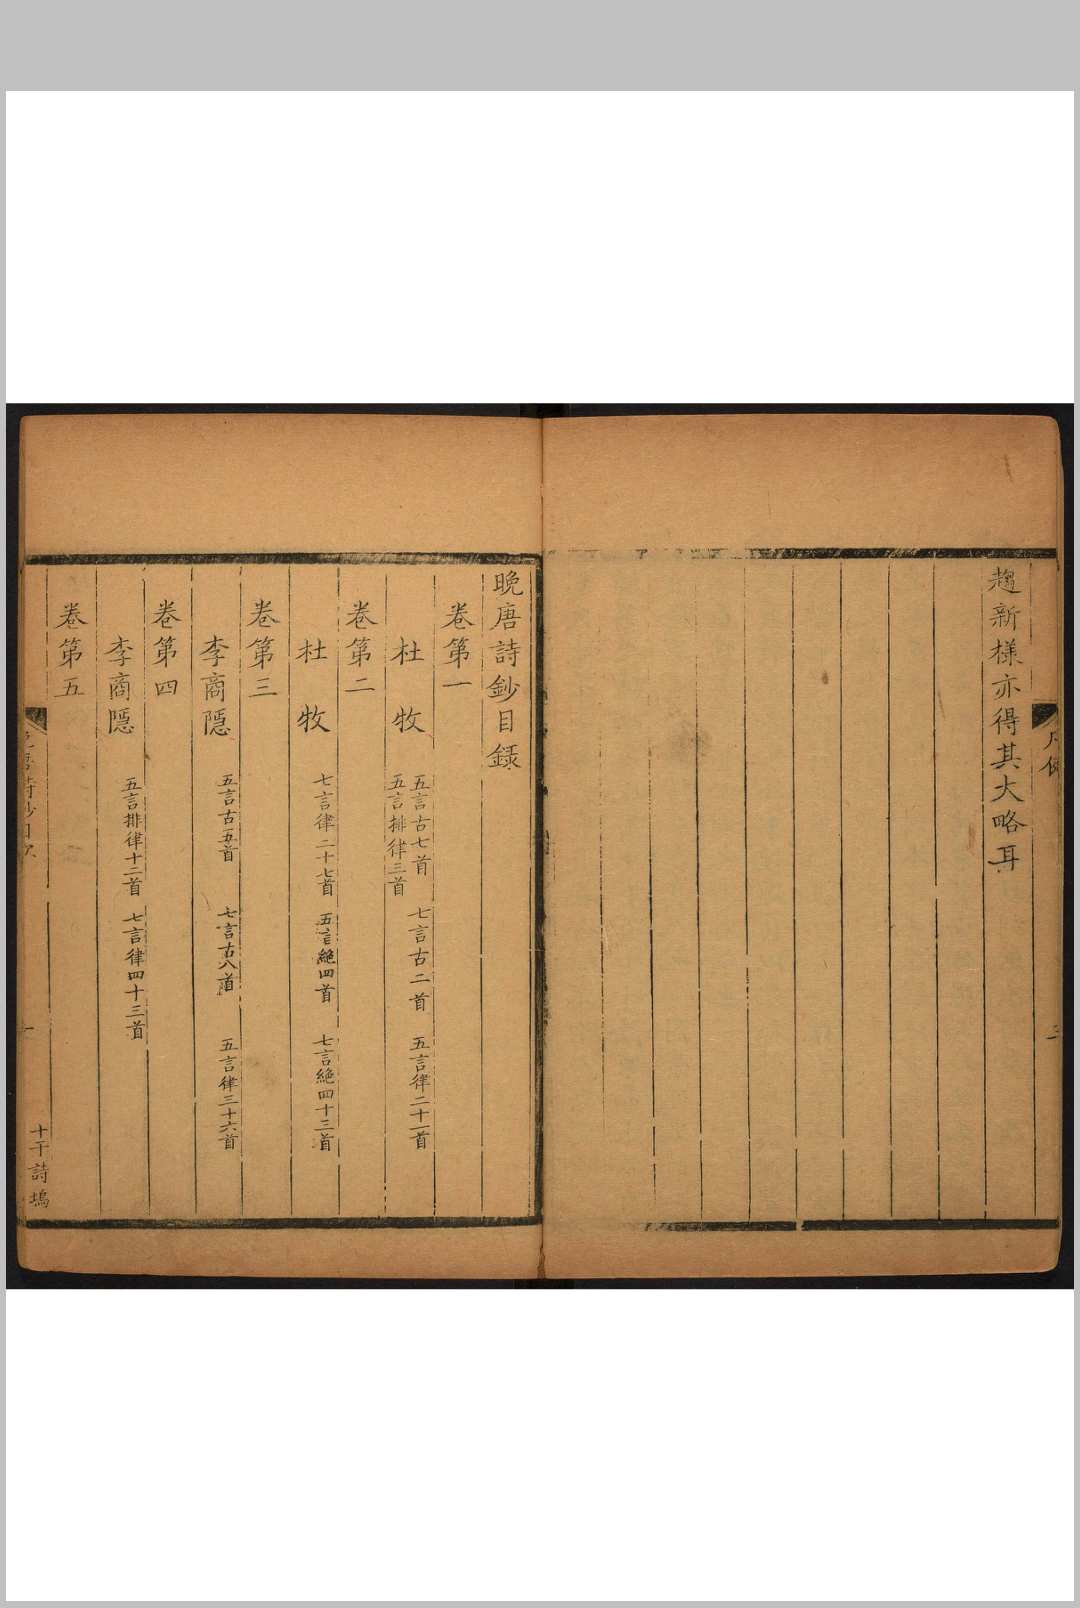 趨新樣亦得其大略耳
三
晚唐詩鈔目録
卷第一
杜牧
五言古七首 七言古二首 五言律二十一首
五言排律三首
卷第二
杜牧
七言律二十七首 五言絶四首 七言絶四十三首
卷第三
李商隱
五言古五首 七言古八首 五言律三十六首
卷第四
李商隱
五言排律十二首 七言律四十三首
卷第五
十干詩塢